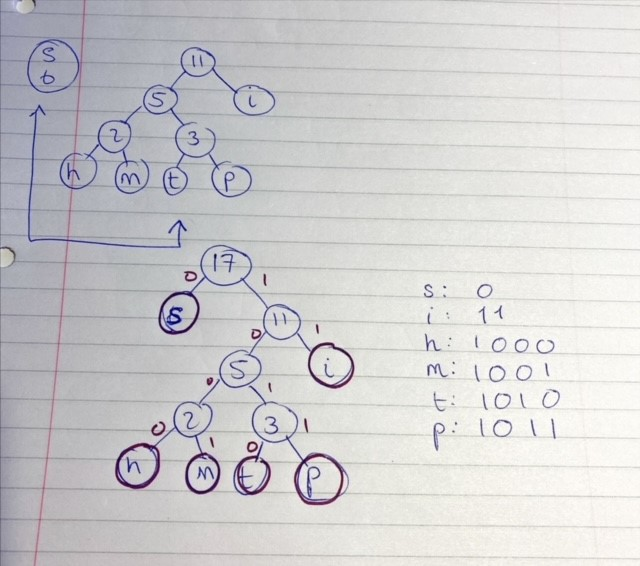 s
6
11
5
i
2
3
h
m
t
p
17
0
1
s
11
0
1
5
i
0
1
2
3
0
1
0
1
h
m
t
p
s: 0
i: 11
h: 1000
m: 1001
t: 1010
p: 1011